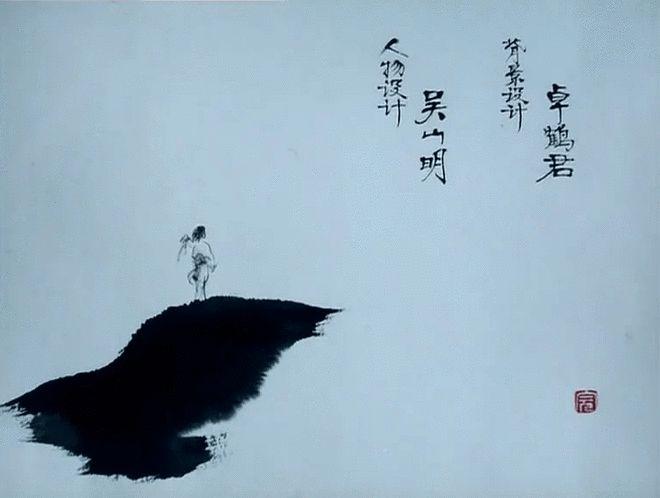 背景设计
卓鹤君
人物设计
吴山明